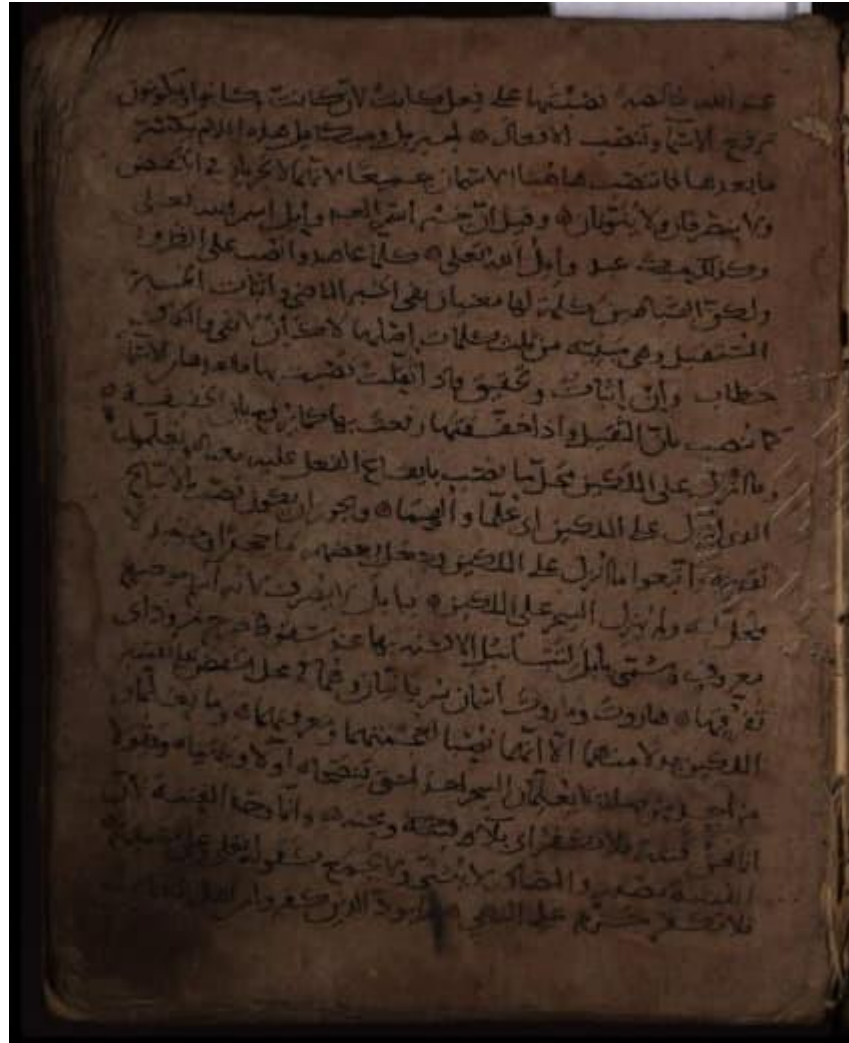 عند الله خالصة نصبتها على فعل كانت لان كانت وكانوا ويكونون
ترفع الاسماء وتنصب الافعال لجبريل وميكايل هذه اللام تكسر
ما بعدها فانتصب هاهنا الاسمان جميعا لانهما لا يجريان في الخفض
ولا ينصرفان ولا ينونان وقيل ان جبر اسم العبد وإيل اسم الله تعالى
وكذلك ميك عبد وإيل الله تعالى كلما عاهدوا نصب على الظرف
ولكن الشياطين كلمة لها معنيان نفي الخبر الماضي واثبات الخبر
المستقبل وهي مبنية من ثلث كلمات اصلها لا ك ان لا نفي والكاف
خطاب وإن إثبات وتحقيق فاذا ثقلت نصبت بها ما بعدها من الاسماء
كما تنصب بان الثقيلة واذا خففتها رفعت بها كما ترفع بان الخفيفة
وما أنزل على الملكين محل ما نصب بايقاع الفعل عليه معناه ويعلمون
الذي انزل على الملكين اي علما وألهما ويجوز ان يكون نصب بالاتباع
تقديره واتبعوا ما انزل على الملكين وجعل بعضهم ما جحدا
ولم ينزل السحر على الملكين ببابل لا ينصرف لانه اسم موضع
معروف وسمي بابل لتبلبل الالسنة بها عند سقوط صرح نمرود اي
تفرقها هاروت وماروت اسمان سريانيان وهما في محل الخفض على
الملكين بدلا منهما الا انهما نصبا لعجمتهما ومعرفتهما وما يعلمان
من احد من صلة لا يعلمان السحر احدا حتى ينصحاه اولا وينهياه ويقولا
انما نحن فتنة فلا تكفر اي بلاء ومحنة وانما وحد الفتنة لان
الفتنة مصدر والمصادر لا تثنى ولا تجمع كقوله تعالى وعلى سمعهم
فلا تكفر جزم على النهي